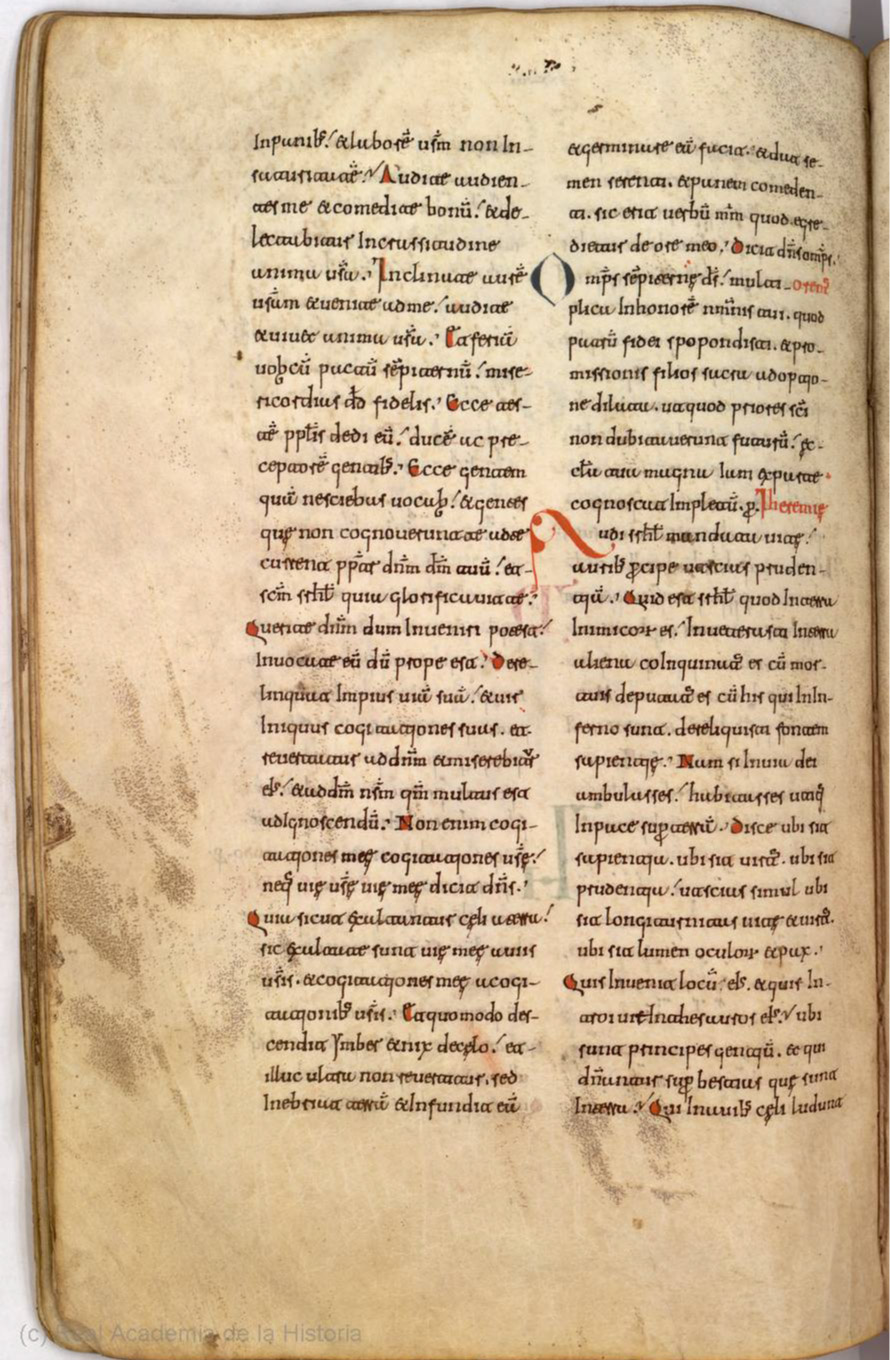 Inpanib; & laborē ur̄m non In-
saturitatē Audite audien-
tes me & comedite bonū & de-
lectabitur Incrassitudine
anima ur̄a. Inclinate aurē
ur̄am & uenite ad me audite
& uiuet anima ur̄a. Et feriā
uobcū pactū sēpiternū mise-
ricordias dd fidelis. Ecce tes-
tē pplis dedi eū ducē ac pre-
ceptorē gentib; Ecce gentem
quā nesciebas uocab & gentes
quę non cognouerunt te ad te
current ppt̄ dn̄m dm̄ tuū et
scm̄ isrl̄ quia glorificauit te.
Querite dn̄m dum Inueniri potest
Inuocate eū dū prope est. Dere-
linquat Impius uiā suā & uir
Iniquus cogitationes suas. et
reuertatur ad dn̄m & miserebit
ei & ad dm̄ nr̄m qm̄ multus est
ad Ignoscendū. Non enim cogi-
tationes meę cogitationes ur̄ę
neq; uię ur̄ę uię meę dicit dn̄s.
Quia sicut exaltantur cęli a terra
sic exaltatę sunt uię meę a uiis
ur̄is. & cogitationes meę a cogi-
tationib; ur̄is. Et quomodo des-
cendit Ymber & nix de cęlo et
illuc ultra non reuertatur. sed
Inebriat terrā & Infundit eā
& germinare eā facit. & dat se-
men serenti. & panem comeden-
ti. sic erit uerbū m̄m quod egre-
dietur de ore meo. dicit dn̄s omps.
Omps sēpiternę ds multi- oreM
plica Inhonorē nominis tui. quod
patrū fidei spopondisti. & pro-
missionis filios sacra adoptio-
ne dilata. ut quod priores sc̄i
non dubitauerunt futurū ec-
cl̄a tua magna Iam ex parte
cognoscat Impletū. p. Iheremię
Audi isrl̄ mandata uitę
auribꝰ pcipe ut scias pruden-
tiā. Quid est isrl̄ quod In terra
Inimicor es Inueterasti In terra
aliena coInquinatꝰ es cū mor-
tuis deputatꝰ es cū his qui In In-
ferno sunt. dereliquisti fontem
sapientię. Nam si In uia dei
ambulasses habitasses utiq;
In pace sup terrā. Disce ubi sit
sapientia. ubi sit uirtꝰ. ubi sit
prudentia ut scias simul ubi
sit longiturnitas uitę & uictꝰ.
ubi sit lumen oculor & pax.
Quis Inuenit locū ei. & quis In-
trouit In thesauros ei ubi
sunt principes gentiū. & qui
dn̄antur sup bestias quę sunt
In terra Qui In auib; cęli ludunt
(c) Real Academia de la Historia